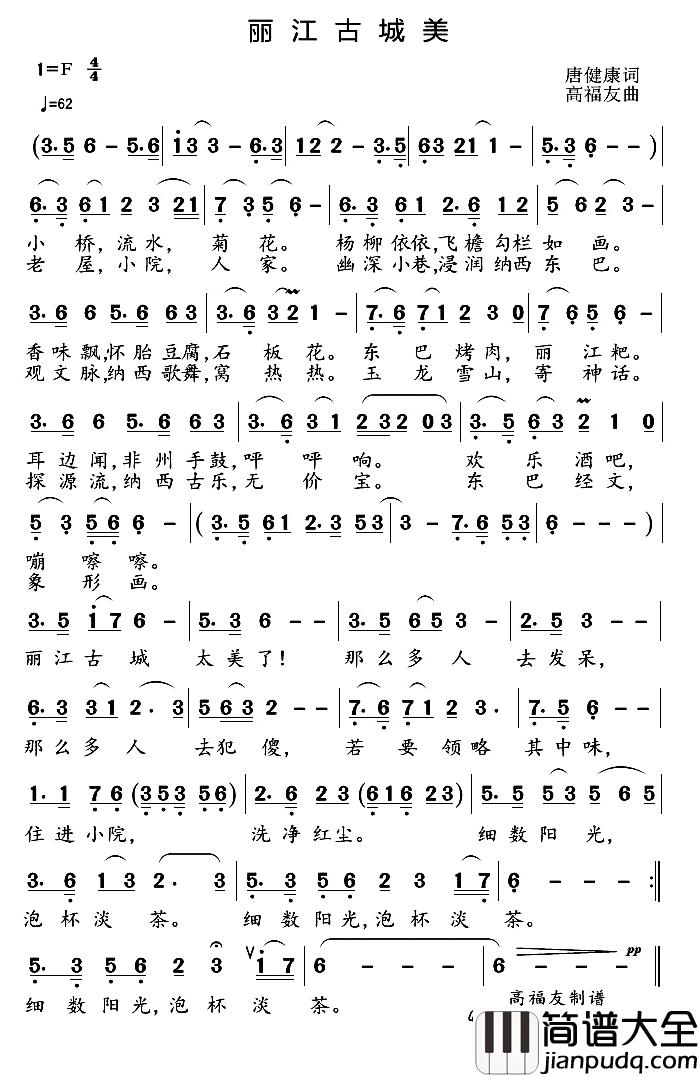 丽江古城美
1=F 4/4
♩=62
唐健康词
高福友曲
(3.5 6 - 5.6 | i3 3 - 6.3 | 122 - 3.5 | 63 21 1 - | 5.3 6 - - )
6.3 612 3 21 | 7 35 6 - | 6.3 61 2.6 12 | 5 62 2 - |
小桥,流水, 菊花。 杨柳依依,飞檐勾栏如画。
老屋,小院, 人家。 幽深小巷,浸润纳西东巴。
3.6 6 5.6 63 | 3.6 32 1 - | 7.6 71 2 30 | 7 65 6 - |
香味飘,怀胎豆腐,石板花。东巴烤肉, 丽江粑。
观文脉,纳西歌舞,窝热热。玉龙雪山, 寄神话。
3.6 6 5.6 63 | 3.6 31 232 03 | 3.5 63 2 1 0 |
耳边闻,非州手鼓,呯呯响。 欢乐酒吧,
探源流,纳西古乐,无价宝。 东巴经文,
5 3 56 6 - | (3.5 61 2.3 53 | 3 - 7.6 53 | 6 - - -) |
嘣嚓嚓。
象形画。
3.5 i7 6 - | 5.3 6 - - | 3.5 65 3 - | 2.5 5 - - |
丽江古城 太美了! 那么多人 去发呆,
6.3 331 2. 3 | 563 3 - - | 7.6 71 2 3. | 7.5 6 - - |
那么多人 去犯傻, 若要领略 其中味,
1.1 76 (353 56) | 2.6 23 (616 23) | 5.5 53 5 65 |
住进小院, 洗净红尘。 细数阳光,
3.6 13 2. 3 | 5.3 56 323 17 | 6 - - - :‖
泡杯淡茶。 细数阳光,泡杯淡茶。
5.3 56 2 3 ∨i7 | 6 - - - | 6 - - - pp ‖
细数阳光,泡杯淡茶。
高福友制谱
简谱大全
jianpudq.com